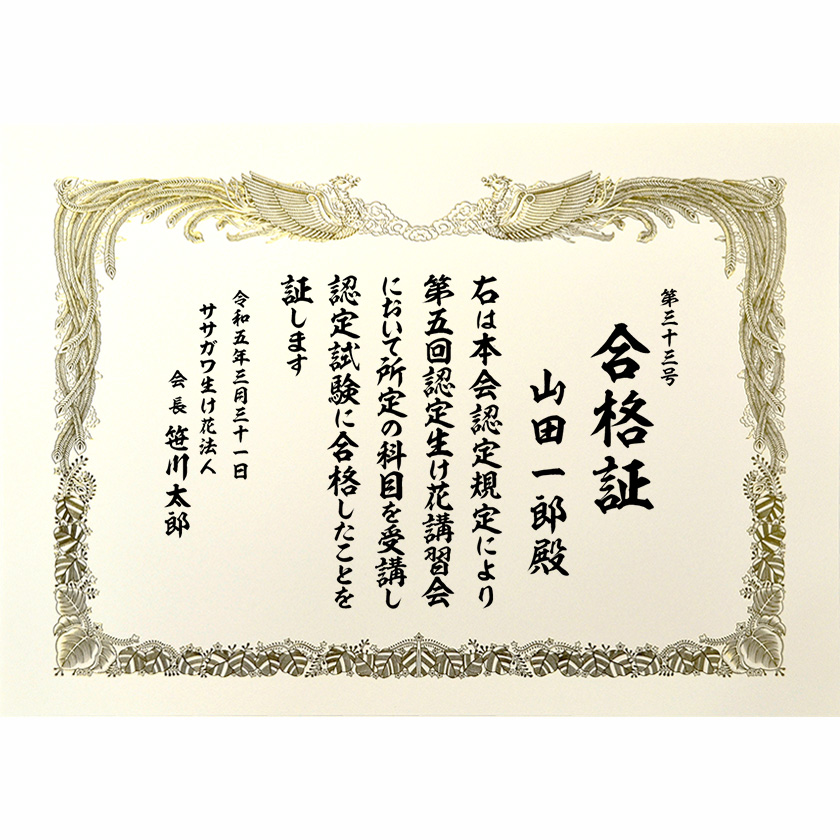 第三十三号
合格証
山田一郎殿
右は本会認定規定により
第五回認定生け花講習会
において所定の科目を受講し
認定試験に合格したことを
証します
令和五年三月三十一日
ササガワ生け花法人
会長 笹川太郎